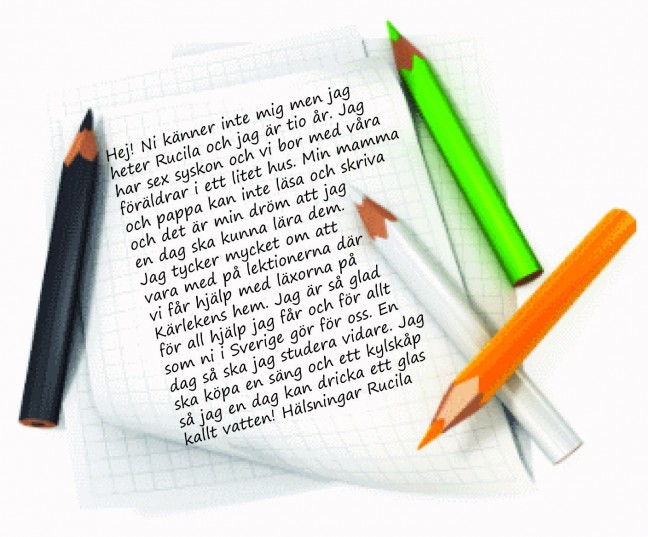 Hej! Ni känner inte mig men jag
heter Rucila och jag är tio år. Jag
har sex syskon och vi bor med våra
föräldrar i ett litet hus. Min mamma
och pappa kan inte läsa och skriva
och det är min dröm att jag
en dag ska kunna lära dem.
Jag tycker mycket om att
vara med på lektionerna där
vi får hjälp med läxorna på
Kärlekens hem. Jag är så glad
för all hjälp jag får och för allt
som ni i Sverige gör för oss. En
dag så ska jag studera vidare. Jag
ska köpa en säng och ett kylskåp
så jag en dag kan dricka ett glas
kallt vatten! Hälsningar Rucila